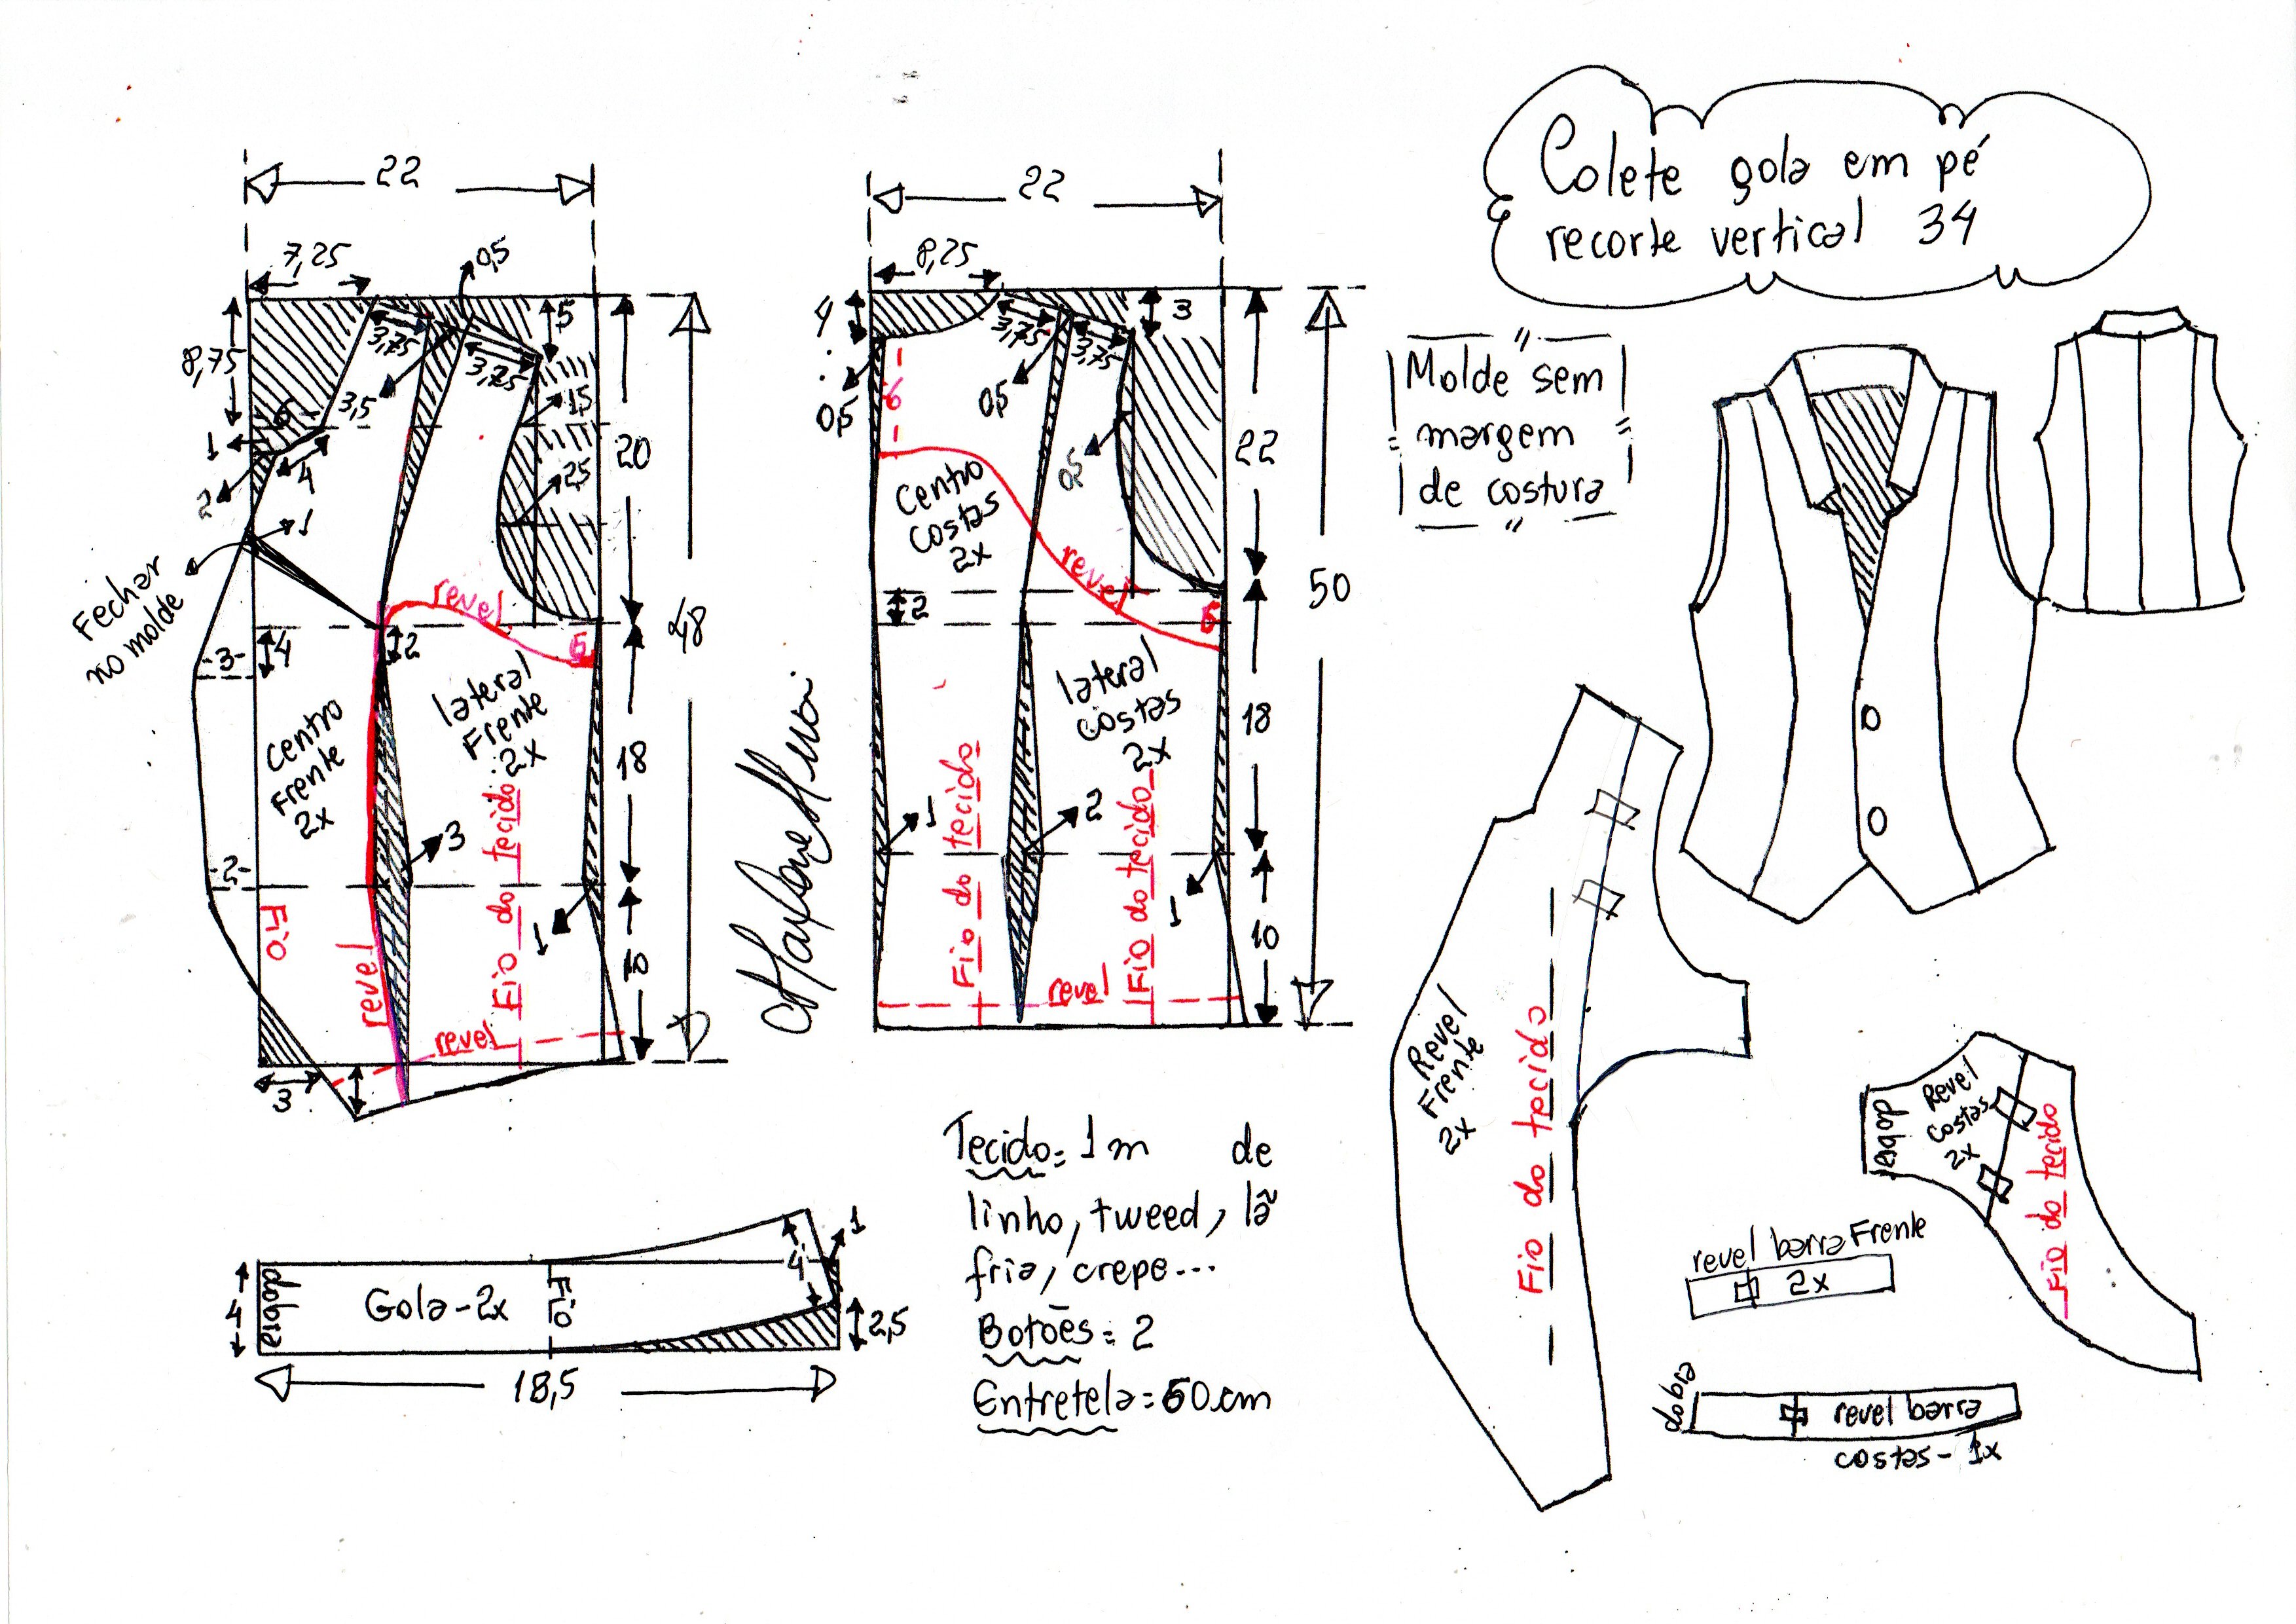 Colete gola em pé
recorte vertical 34
Molde sem
margem
de costura
22
7,25
0,5
8,75
3,75
3,75
5
3,5
6
1
4
2
1,5
2,5
1
20
Fechar
no molde
revel
5
3
4
2
48
Centro
Frente
2x
lateral
Frente
2x
18
3
2
Fio
revel
Fio do tecido
1
10
revel
3
22
8,25
4
3,75
3,75
3
0,5
6
0,5
0,5
22
Centro
Costas
2x
revel
2
5
50
lateral
costas
2x
18
Fio do tecido
Fio do tecido
1
2
1
10
revel
4
dobra
Gola-2x
Fio
4
1
2,5
18,5
Tecido= 1m de
linho, tweed, lã
fria, crepe...
Botões= 2
Entretela=60cm
Revel
Frente
2x
Fio do tecido
dobra
Revel
costas
2x
Fio do tecido
revel barra Frente
2x
dobra
revel barra
costas- 1x